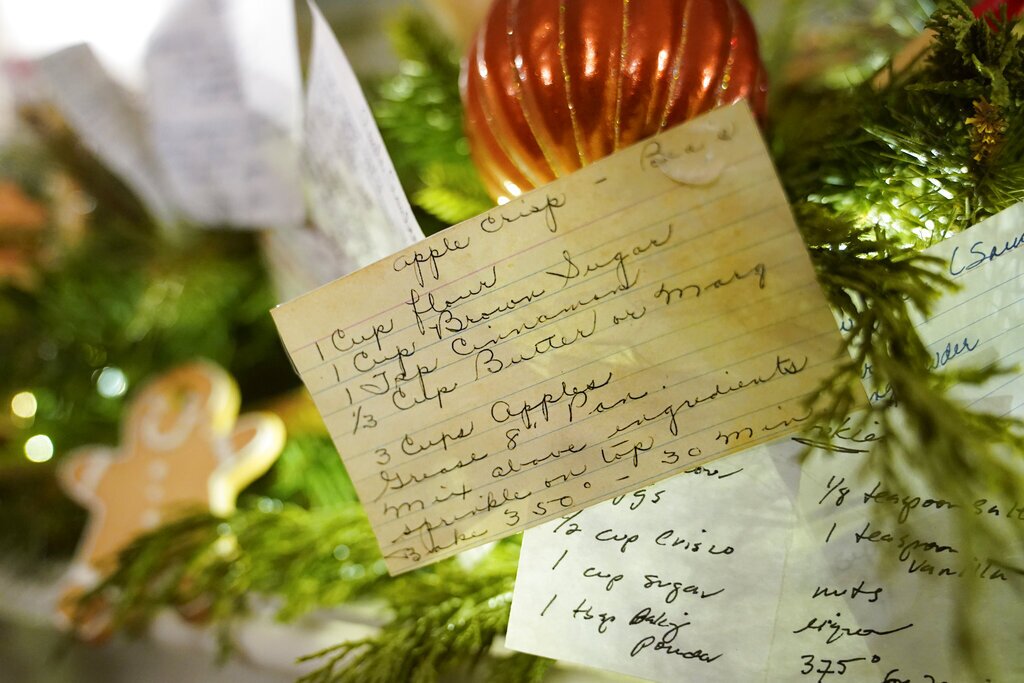 apple Crisp -
1 Cup flour
1 Cup Brown Sugar
1 Tsp Cinnamon
1/3 Cup Butter or Marg
3 Cups apples
Grease 8" Pan.
Mix above ingredients
sprinkle on top
Bake 350° - 30 Min
1/2 cup Crisco
1 cup sugar
1 tsp Baking
Powder
1/8 teaspoon salt
1 teaspoon
vanilla
nuts
375° for